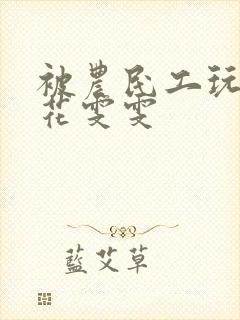 被農民工玩
花雯雯
藍艾草